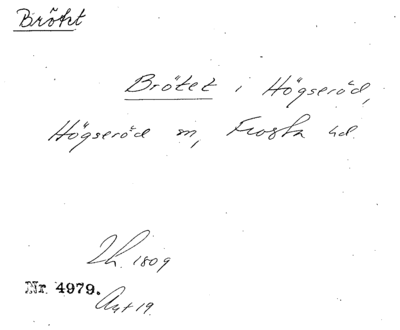 Brötet
Brötet i Högseröd,
Högseröd sn, Frosta hd.
Lh. 1809
Nr 4979.
Akt 19.